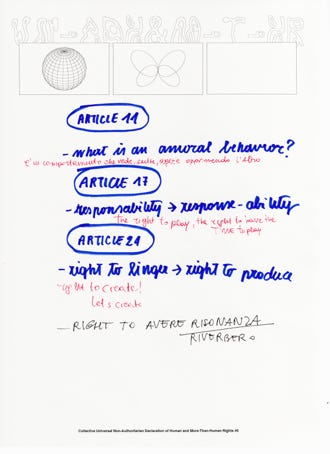 ARTICLE 11
- what is an amoral behavior?
ARTICLE 17
- responsability → response-ability
the right to play, the right to have the
TIME to play
ARTICLE 21
- right to linger → right to produce
right to create!
let's create
— RIGHT TO AVERE RISONANZA
RIVERBERO
Collective Universal Non-Authoritarian Declaration of Human and More-Than-Human Rights #6